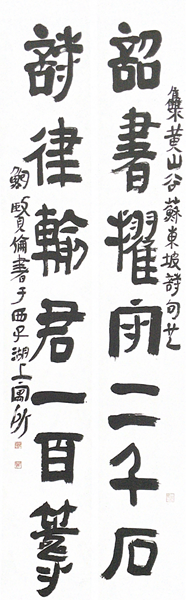 集黃山谷蘇東坡詩句
詔書擢守二千石
詩律輸君一百籌
鮑賢倫書于西子湖上寓所